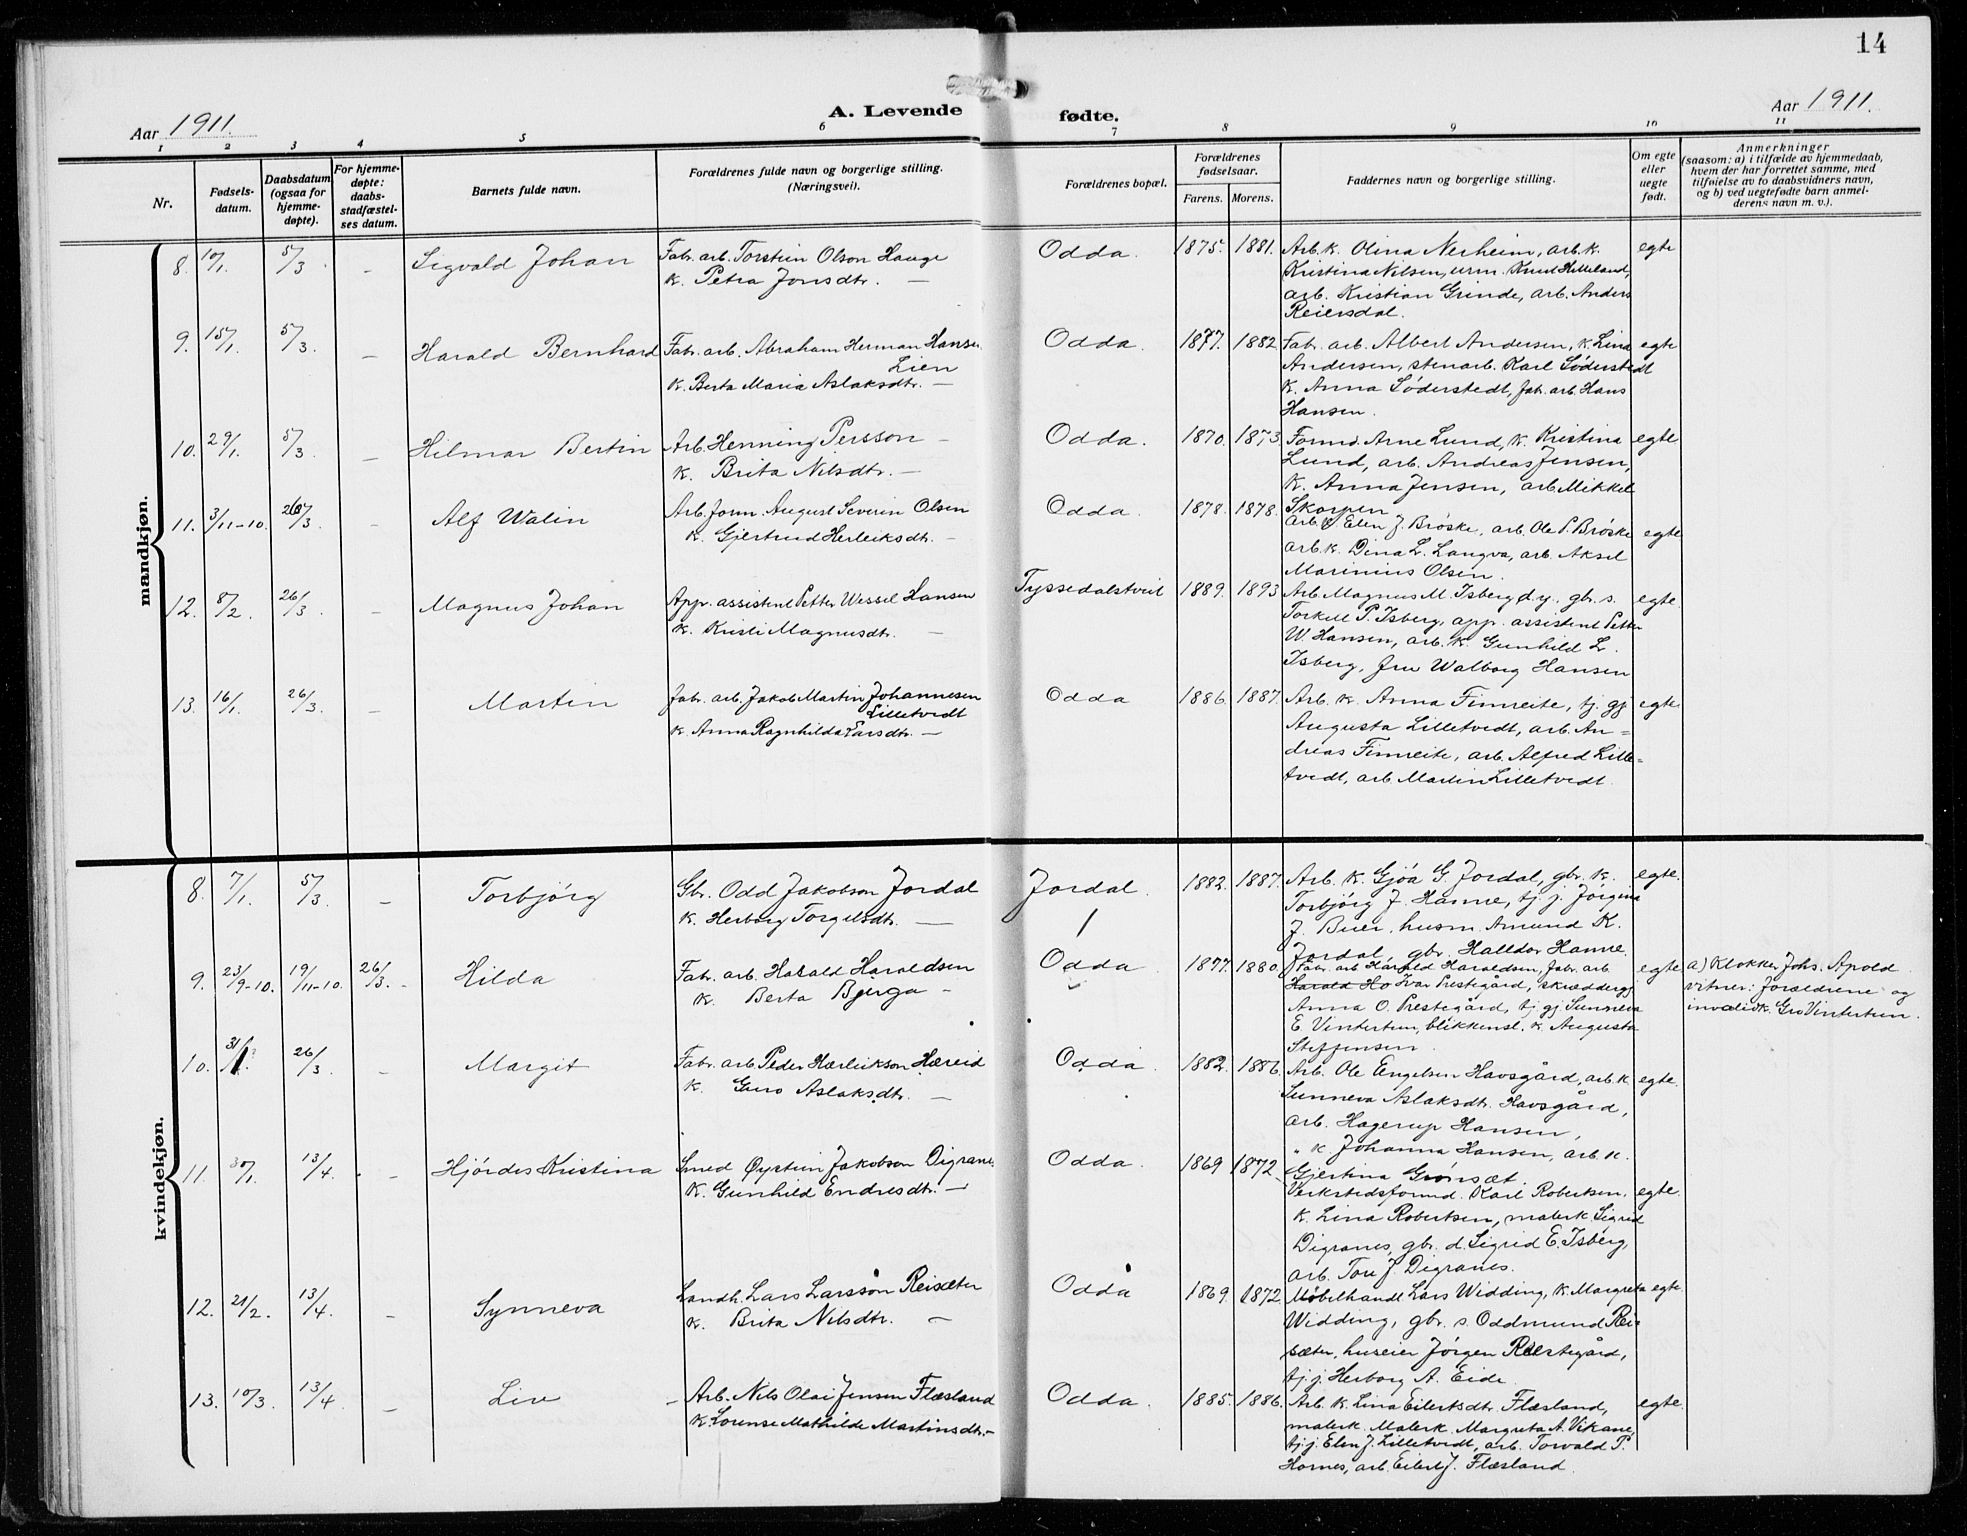 14
Aar 1911.
A. Levende fødte.
Aar 1911.
1 2 3 4 5 6 7 8 9 10 11
Nr.
Fødsels-
datum.
Daabsdatum
(ogsaa for
hjemme-
døpte).
For hjemme-
døpte:
daabs-
stadfæstel-
ses datum.
Barnets fulde navn.
Forældrenes fulde navn og borgerlige stilling.
(Næringsvei).
Forældrenes bopæl.
Forældrenes
fødselsaar.
Farens. Morens.
Faddernes navn og borgerlige stilling.
Om egte
eller
uegte
født.
Anmerkninger
(saasom: a) i tilfælde av hjemmedaab,
hvem der har forrettet samme, med
tilføielse av to daabsvidners navn,
og b) ved uegtefødte barn anmel-
derens navn m. v.).
mandkjøn.
8. 10/1. 5/3. – Sigvald Johan
Fabr. arb. Torstein Olson Hauge
k. Petra Jonsdtr. —
Odda. 1875. 1881.
Arb. k. Olina Nerheim, arb. k.
Kristina Nilsen, urm. Knut Helleland,
arb. Kristian Grinde, arb. Anders
Reiersdal.
egte
9. 15/1. 5/3. – Harald Bernhard
Fabr. arb. Abraham Herman Hansen
Lien
k. Berta Maria Aslaksdtr. —
Odda. 1877. 1882
Fabr. arb. Albert Andersen, k. Lina
Andersen, stenarb. Karl Søderstedt
k. Anna Søderstedt, fabr. arb. Hans
Hansen.
egte
10. 29/1. 5/3. – Hilmar Bertin
Arb. Henning Persson –
k. Brita Nilsdtr. —
Odda. 1870. 1873.
Formd. Arne Lund, k. Kristina
Lund, arb. Andreas Jensen,
k. Anna Jensen, arb. Mikkel
Skorpen
egte
11. 3/11-10. 26/3. – Alf Walin
Arb. form. August Severin Olsen
k. Gjertrud Herleiksdtr. —
Odda. 1878. 1878.
Arb. k. Elen J. Brøske, arb. Ole P. Brøske
arb. k. Dina L. Langva, arb. Aksel
Marinius Olsen.
egte
12. 8/2. 26/3. – Magnus Johan
App. assistent Petter Wessel Hansen
k. Kristi Magnusdtr. —
Tyssedalstveit 1889. 1893
Arb. Magnus M. Isberg d.y., gbr. s.
Torkell P. Isberg, app. assistent Petter
W. Hansen, arb. k. Gunhild L.
Isberg, fru Walborg Hansen
egte.
13. 16/1. 26/3. – Martin
Fabr. arb. Jakob Martin Johannesen
Lilletvedt
k. Anna Ragnhilda Larsdtr. —
Odda 1886. 1887.
Arb. k. Anna Finneite, tj. gj
Augusta Lilletvedt, arb. An=
dreas Finneite, arb. Alfred Lille=
tvedt, arb. Martin Lilletvedt.
egte.
kvindekjøn.
8. 7/1. 5/3. – Torbjörg
Gbr. Odd Jakobson Jordal
k. Herborg Torgilsdtr. —
Jordal. 1882. 1887.
Arb. k. Gjøa G. Jordal, gbr. k.
Torbjörg J. Hanne, tj. j. Jörgina
J. Buer, husm. Amund K.
Jordal, gbr. Halldor Hanne.
egte.
9. 23/9-10. 19/11-10. 26/3. – Hilda
Fabr. arb. Harald Haraldsen
k. Berta Bjerga –
Odda 1877. 1880.
Fabr. arb. Harald Haraldsen, fabr. arb.
Harald Ho Ivar Prestegård, skræddergj
Anna O. Prestegård, tj. gj Sunneva
E. Vintertun, blikkensl. k. Augusta
Steffensen.
egte
a) Klokker Johs. Apold
vitner: forældrene og
invalidk. Gro Vintertun.
10. 31/1. 26/3. – Margit
Fabr. arb. Peder Hærleikson Hæreid
k. Guro Aslaksdtr. —
Odda. 1882. 1886.
Arb. Ole Engelsen Havsgård, arb. k.
Sunneva Aslaksdtr. Havsgård,
arb. Hagerup Hansen,
" k Johanna Hansen, arb. k.
Gjertina Grönsæt.
egte.
11. 30/1. 13/4. – Hjördis Kristina
Smed Øystein Jakobson Digranes
k. Gunhild Endresdtr. —
Odda. 1869 1872.
Verkstedsformd. Karl Robertsen,
k. Lina Robertsen, malerk. Sigrid
Digranes, gbr. d. Sigrid E. Isberg,
arb. Tore J. Digranes.
egte.
12. 21/2. 13/4. – Synneva
Landh. Lars Larsson Reisæter
k. Brita Nilsdtr. —
Odda 1869. 1872.
Møbelhandl. Lars Widding, k. Margreta
Widding, gbr. s. Oddmund Rei-
sæter, huseier Jørgen Prestegård,
tj. j. Herborg A. Eide.
egte.
13. 10/3. 13/4. – Liv
– Arb. Nils Olai Jensen Flæsland
k. Lorense Mathilde Martinsdtr. –
Odda. 1885. 1886.
Arb. k. Lina Eilertsdtr. Flæsland,
malerk. Malerk. Margreta A. Vikane,
tj. j. Elen J. Lilletvedt, arb. Torvald P.
Hornes, arb. Eilert J. Flæsland.
egte.